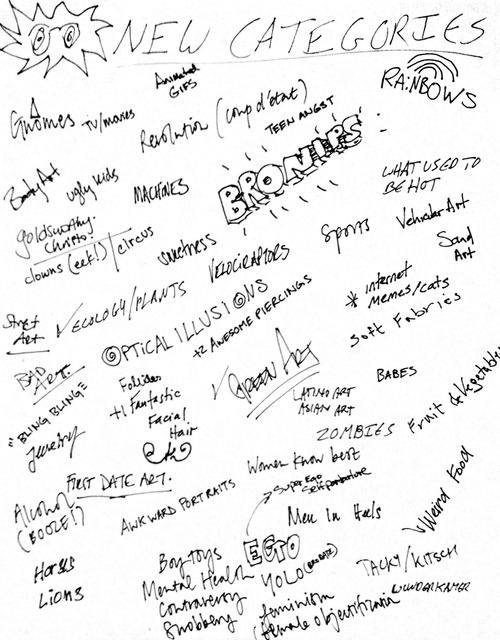 NEW CATEGORIES
Animated
GIFS
RAiNBOWS
Gnomes
TV/movies
Revolution (coup d'état)
TEEN ANGST
BRO NIPS
Body Art
ugly kids
MACHINES
WHAT USED TO
BE HOT
goldsworthy.
Christo!
clowns (eek!) / circus
sweetness
VELOCIRAPTORS
Sports
Vehicular Art
Sand
Art
Street
Art
ECOLOGY/PLANTS
OPTICAL ILLUSIONS
+2 AWESOME PIERCINGS
* internet
memes/cats
Soft Fabrics
BAD
ART
Folicles
+1 Fantastic
Facial
Hair
GREEN ART
LATINO ART
ASIAN ART
BABES
"BLING BLING"
Jewelry
ZOMBIES
Fruit & Vegetables
FIRST DATE ART.
Women Know best
Super Ego
Self portraiture
Alcohol
(BOOZE!)
AWKWARD PORTRAITS
Men in Heels
Weird Food
Horses
Lions
Boy toys
EGO
Mental Health
YOLO
TACKY/KITSCH
Controversy
WUNDERKAMER
Snobbery
feminism
female objectification